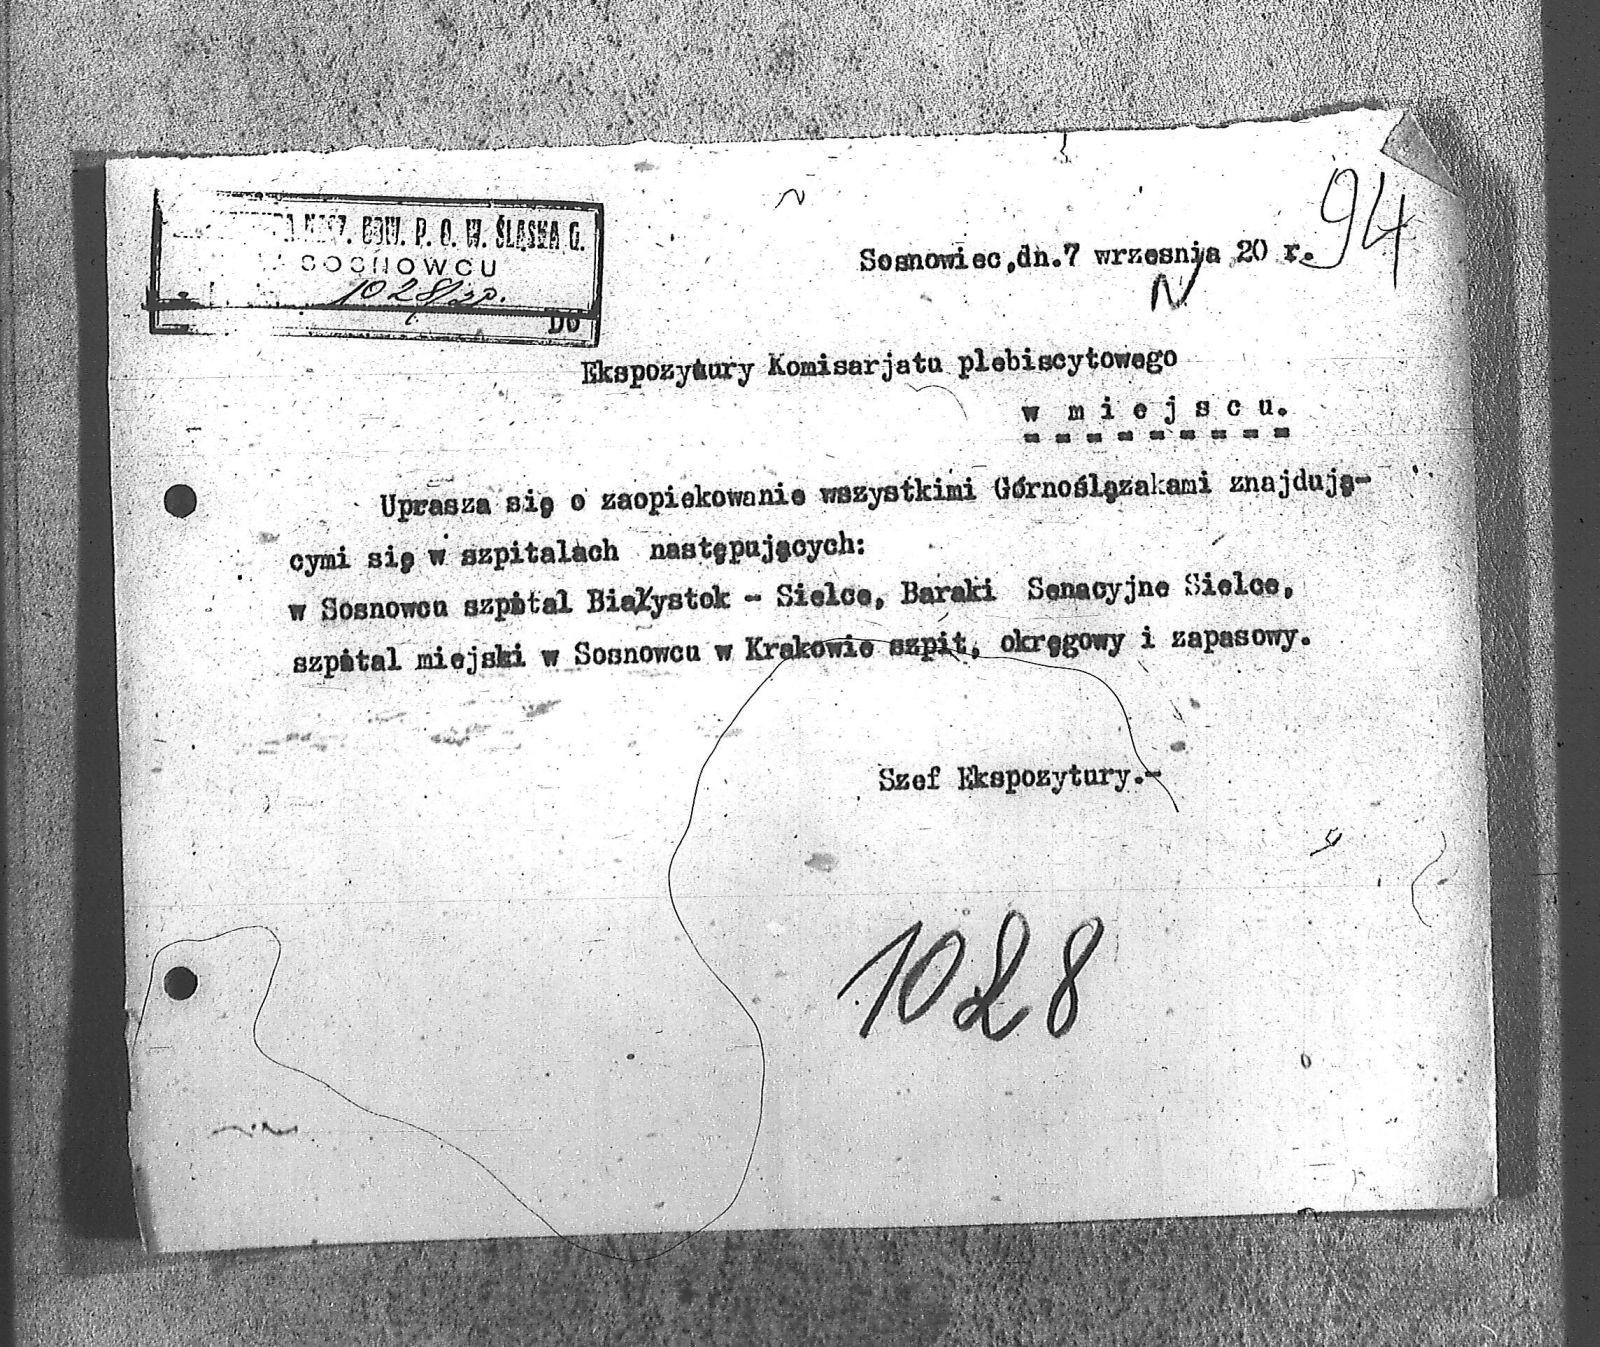 94
DOW. P. O. W. ŚLĄSKA G.
W SOSNOWCU
1028/20.
Sosnowiec,dn.7 wrzesnia 20 r.
Do
Ekspozytury Komisarjatu plebiscytowego
w miejscu.
Uprasza się o zaopiekowanie wszystkimi Górnoślązakami znajdują-
cymi się w szpitalach następujących:
w Sosnowcu szpital Białystok - Sielce, Baraki Senacyjne Sielce,
szpital miejski w Sosnowcu w Krakowie szpit, okręgowy i zapasowy.
Szef Ekspozytury.-
1028